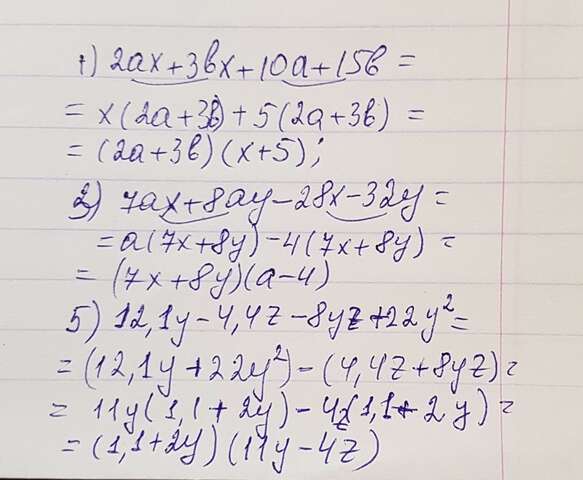 1) 2ax+3bx+10a+15b=
=x(2a+3b)+5(2a+3b)=
=(2a+3b)(x+5);
2) 7ax+8ay-28x-32y=
=a(7x+8y)-4(7x+8y)=
=(7x+8y)(a-4)
5) 12,1y-4,4z-8yz+22y²=
=(12,1y+22y²)-(4,4z+8yz)=
=11y(1,1+2y)-4z(1,1+2y)=
=(1,1+2y)(11y-4z)